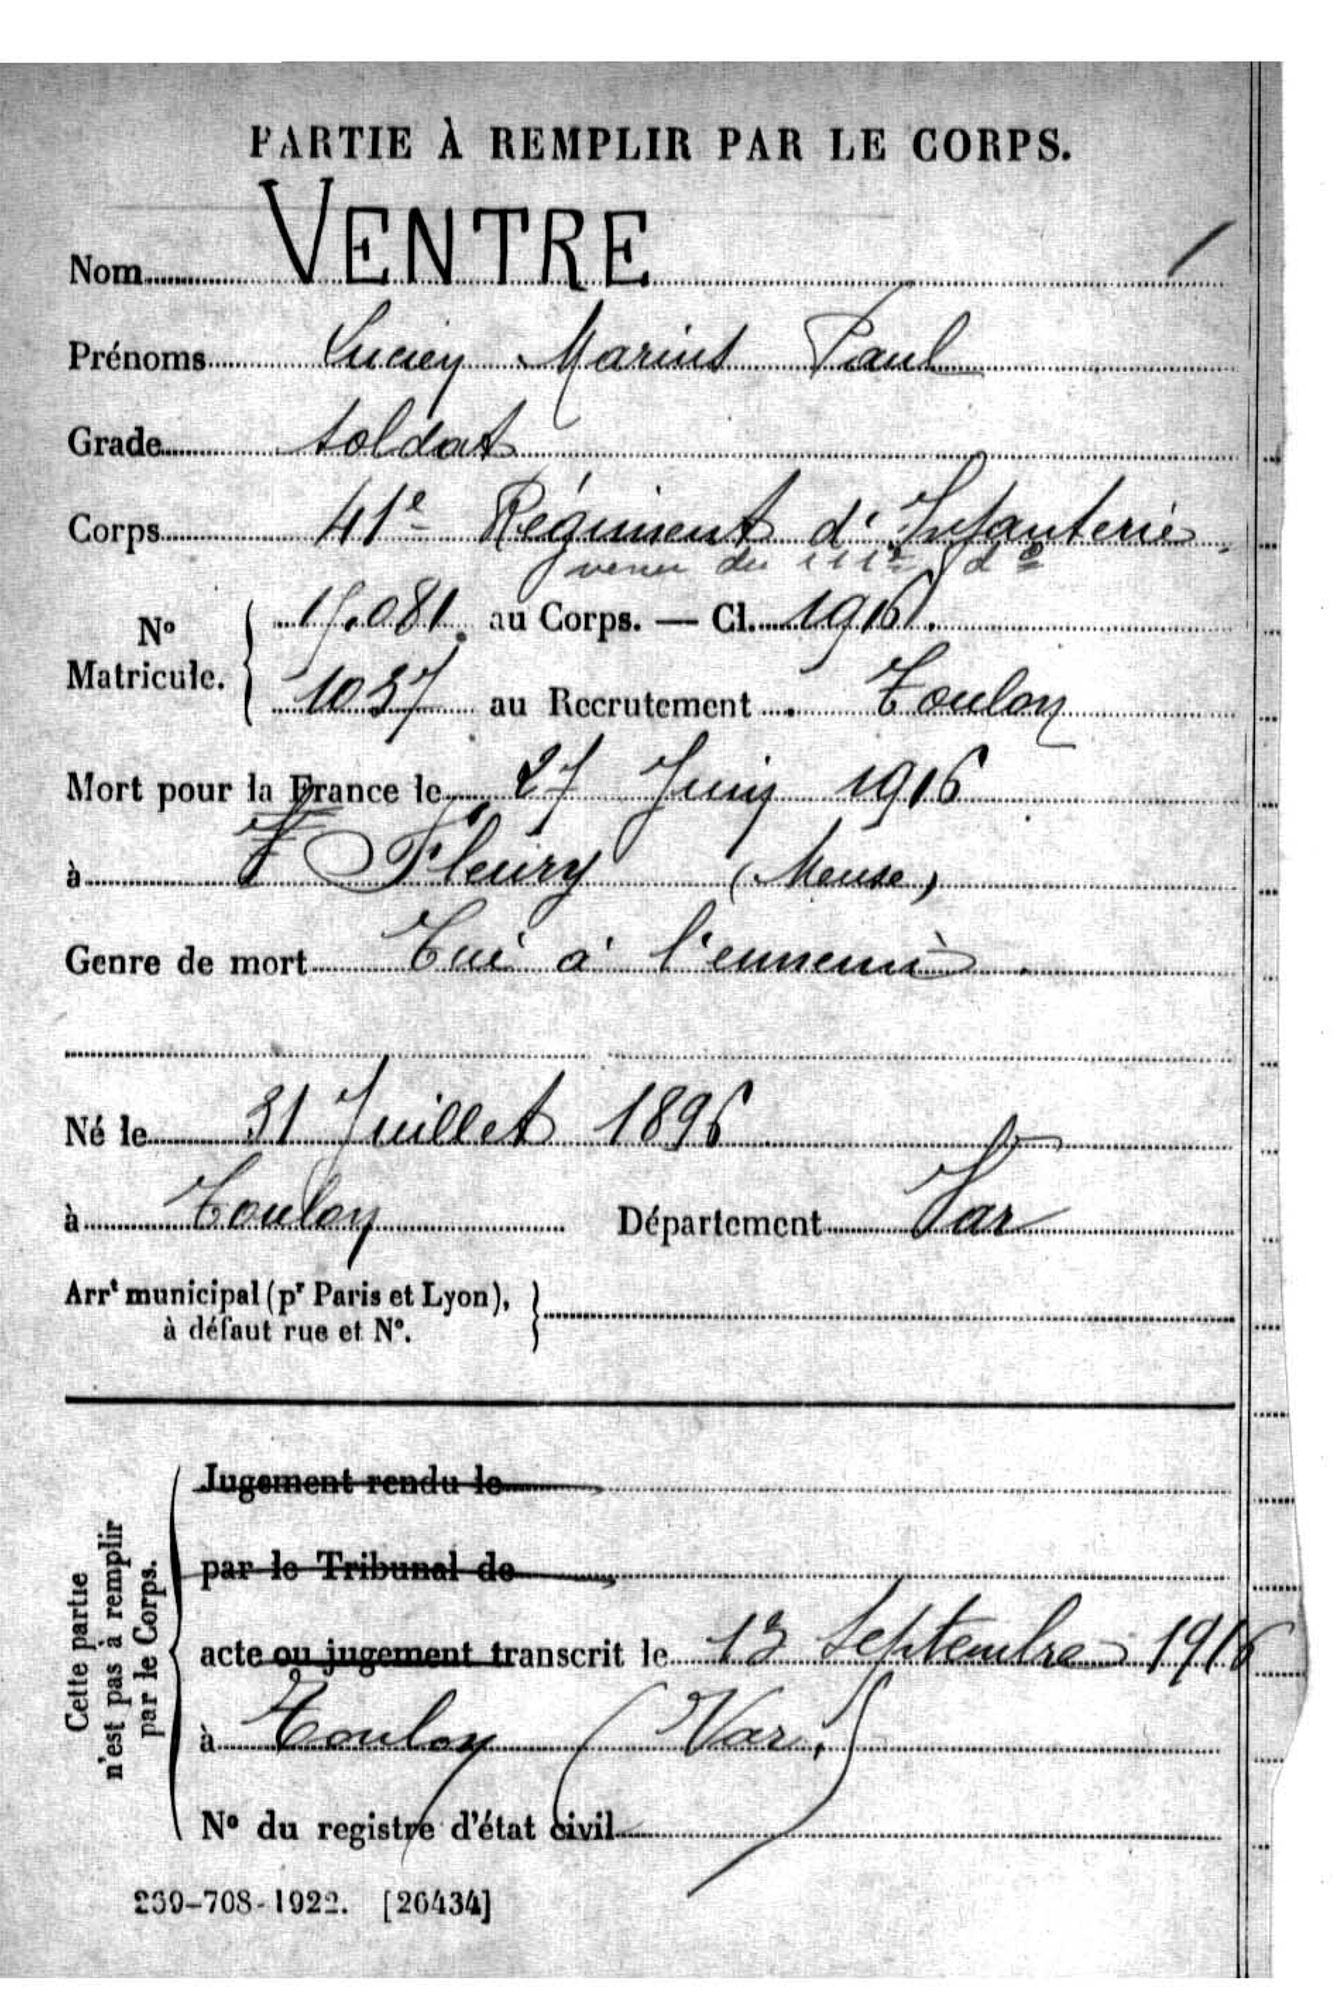 PARTIE À REMPLIR PAR LE CORPS.
Nom VENTRE
Prénoms Lucien Marius Paul
Grade soldat
Corps 41e Régiment d'Infanterie
venu du 111e do
No Matricule. 15.081. au Corps. — Cl. 1916.
1037 au Recrutement . Toulon
Mort pour la France le 27 Juin 1916
à Fleury (Meuse)
Genre de mort Tué à l'ennemi
Né le 31 Juillet 1896
à Toulon Département Var
Arrt municipal (pr Paris et Lyon),
à défaut rue et No.
Cette partie
n'est pas à remplir
par le Corps.
Jugement rendu le
par le Tribunal de
acte ou jugement transcrit le 13 Septembre 1916
à Toulon (Var.)
No du registre d'état civil
239-708-1922. [26434]